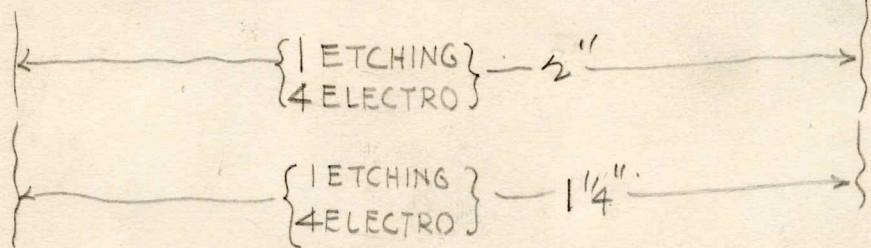 1 ETCHING
4 ELECTRO
2"
1 ETCHING
4 ELECTRO
1 1/4"